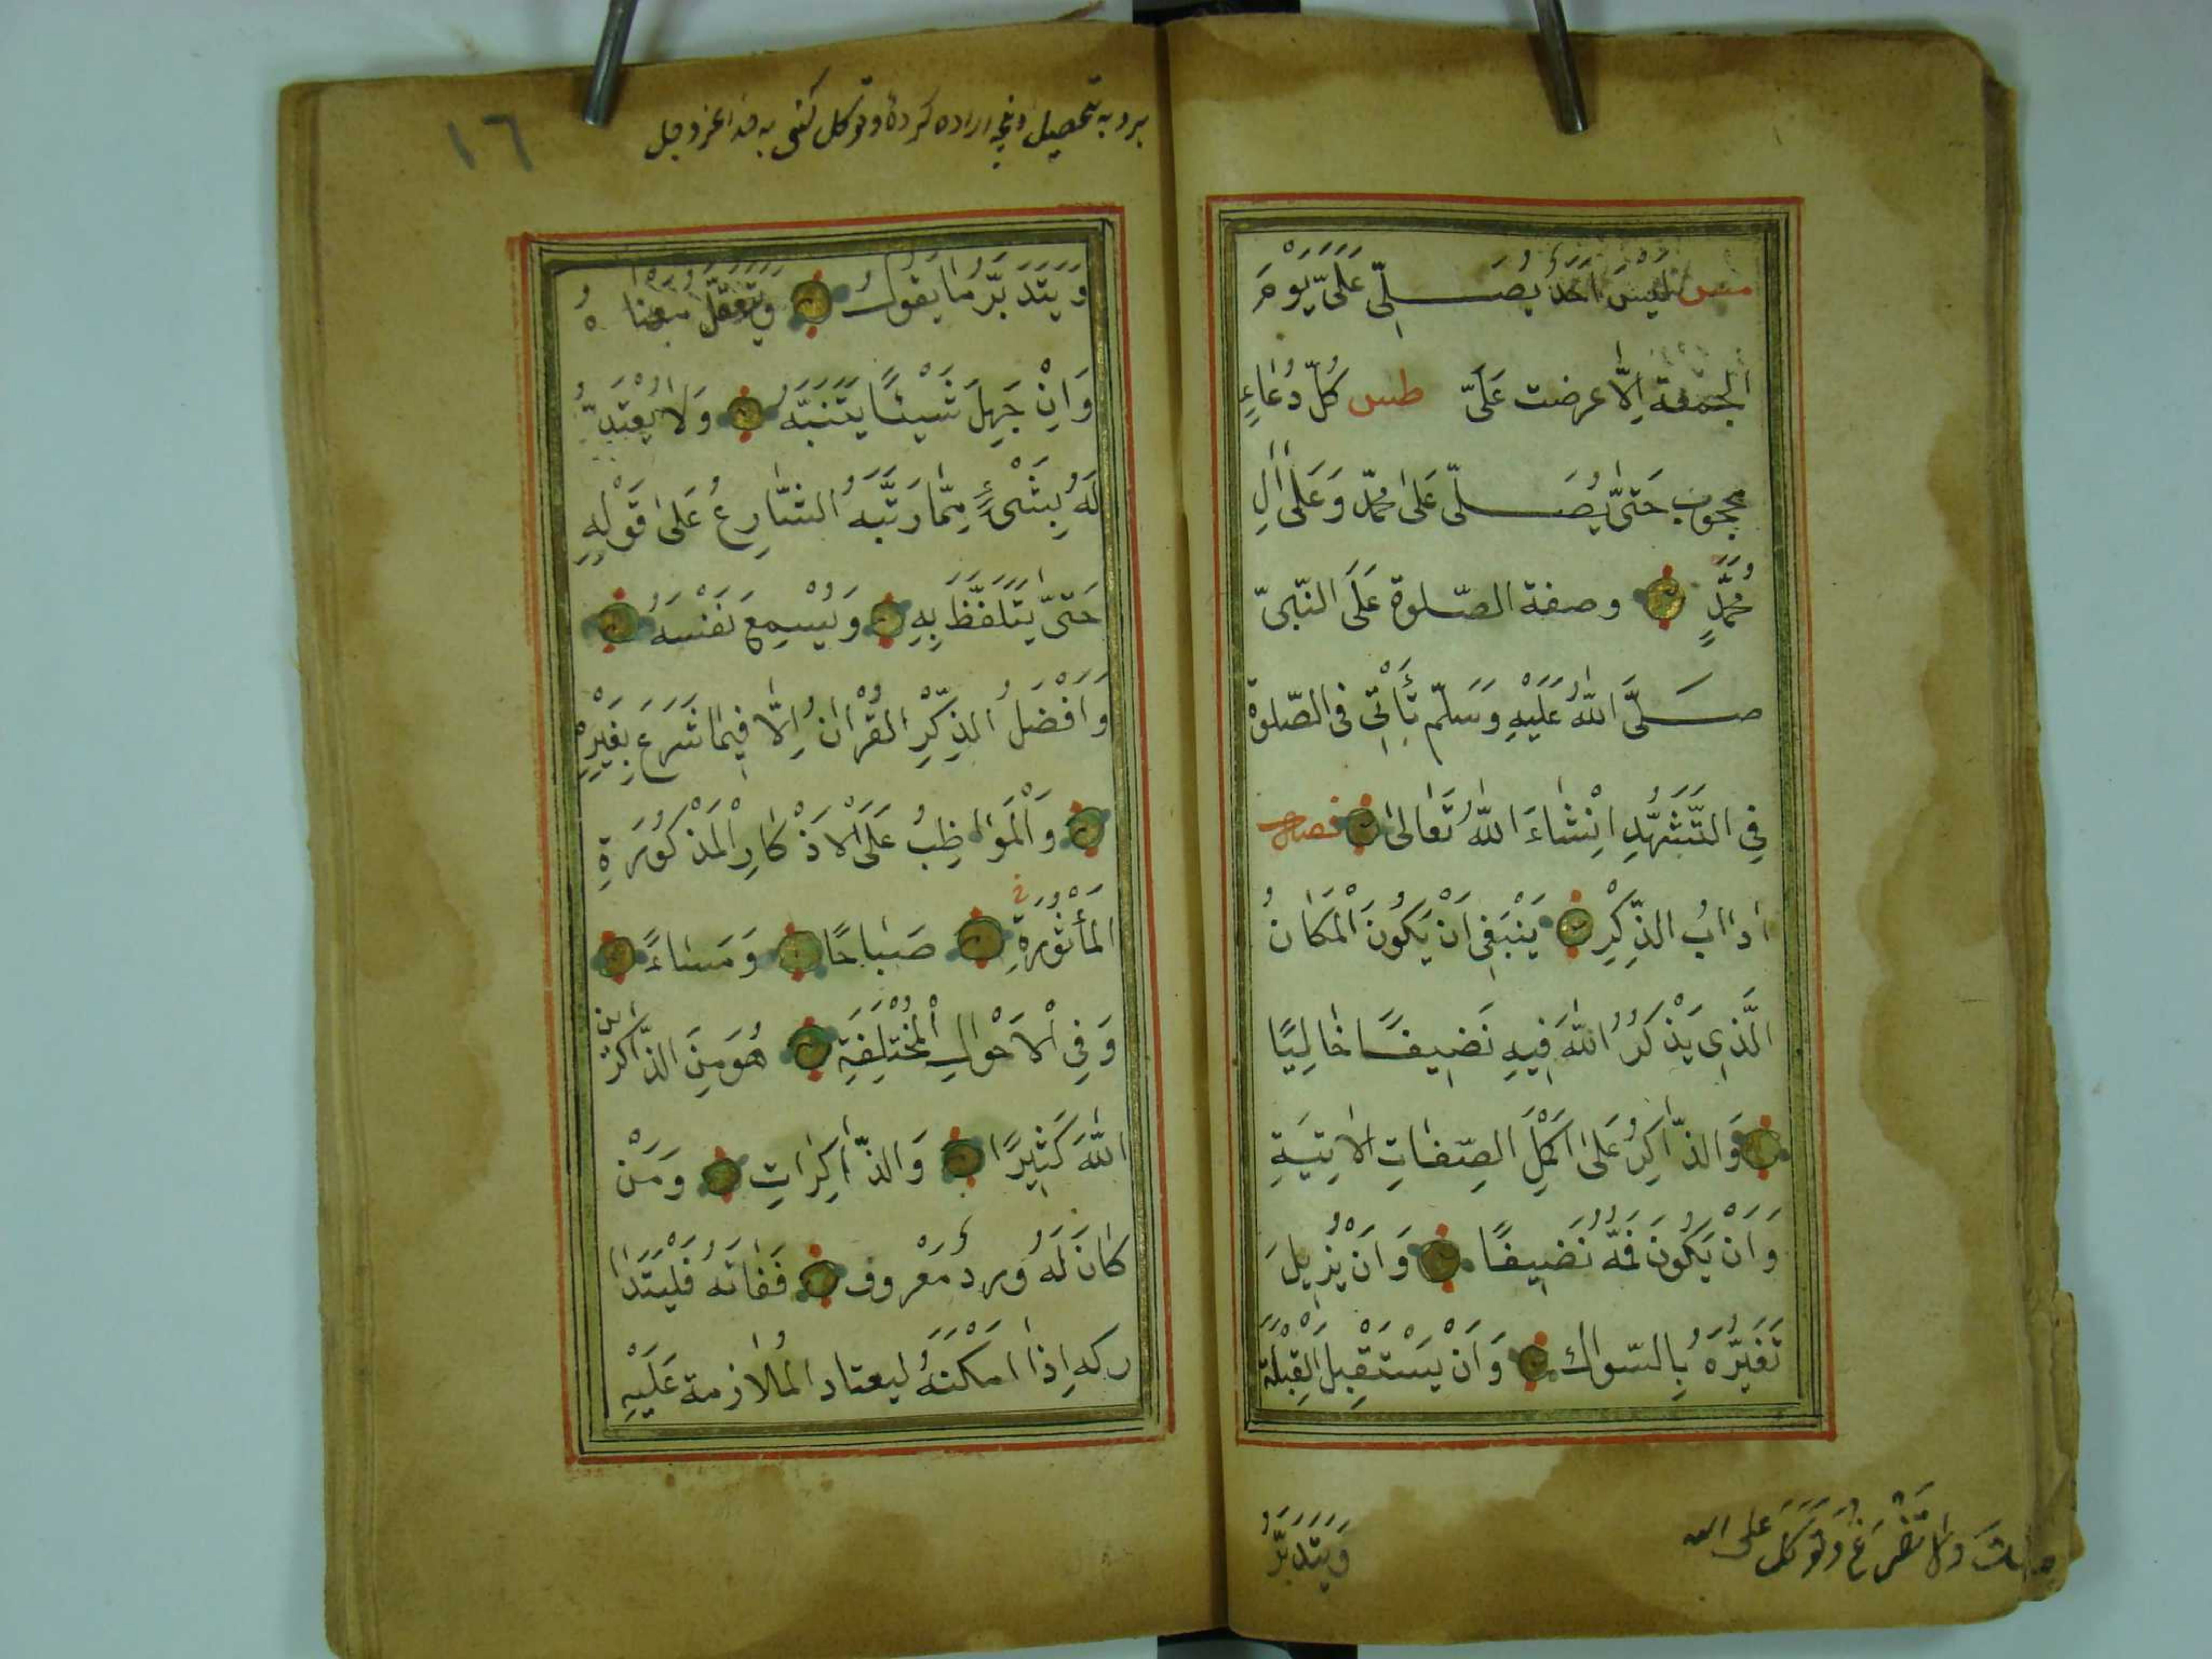 مس لَيْسَ اَحَدٌ يُصَلِّى عَلَىَّ يَوْمَ
الجمعة اِلَّا عرضت عَلَىَّ طس كُلُّ دُعَاءٍ
محجوب حَتّىٰ يُصَلّى عَلىٰ مُحَمَّد وَعَلىٰ اٰلِ
مُحَمَّدٍ وصفة الصّلوة عَلَى النّبىّ
صَلَّى اللّٰهُ عَلَيْهِ وَسَلَّم تَأْتِى فى الصّلوة
فِى التَّشَهُّدِ اِنْشَاءَ اللّٰهُ تَعَالىٰ فصل
اٰدَابُ الذِّكْرِ يَنْبَغِى اَنْ يَكُونَ الْمَكَانُ
الَّذِى يَذْكُرُ اللّٰهَ فِيهِ نَضِيفًا خَالِيًا
وَالذَّاكِرُ عَلىٰ اَكْمَلِ الصِّفَاتِ الاٰتِيَةِ
وَاَنْ يَكُونَ فَمُهُ نَضِيفًا وَاَنْ يُزِيلَ
تَغَيُّرَهُ بِالسّواك وَاَنْ يَسْتَقْبِلَ الْقِبْلَة
وَيَتَدَبَّرُ
وَلَا تَضْرَعْ وَتَوَكَّلْ عَلى الله
برو به تحصيل كرده و توكل كنى به خدا عز و جل
١٦
وَيَتَدَبَّرُ مَا يَقُولُ وَيَتَعَقَّلُ مَعْنَاهُ
وَاِنْ جَهِلَ شَيْئًا يَتَنَبَّهُ وَلَا يُعْتَدُّ
لَهُ بِشَىْءٍ مِمَّا رَتَّبَهُ الشَّارِعُ عَلىٰ قَوْلِهِ
حَتّىٰ يَتَلَفَّظَ بِهِ وَيُسْمِعَ نَفْسَهُ
وَاَفْضَلُ الذِّكْرِ الْقُرْاٰنُ اِلَّا فِيمَا شَرَعَ بِغَيْرِهِ
وَالْمَوَاظِبُ عَلَى الْاَذْكَارِ الْمَذْكُورَةِ
الْمَأْثُورَةِ صَبَاحًا وَمَسَاءً
وَفِى الْاَحْوَالِ الْمُخْتَلِفَةِ هُوَ مِنَ الذّاكرين
اللّٰهَ كَثِيرًا وَالذَّاكِرَاتِ وَمَنْ
كَانَ لَهُ وِرْدٌ مَعْرُوف فَفَاتَهُ فَلْيَتَدَا
ركه اِذَا اَمْكَنَهُ ليعتاد الْمُلَازمة عَلَيْهِ